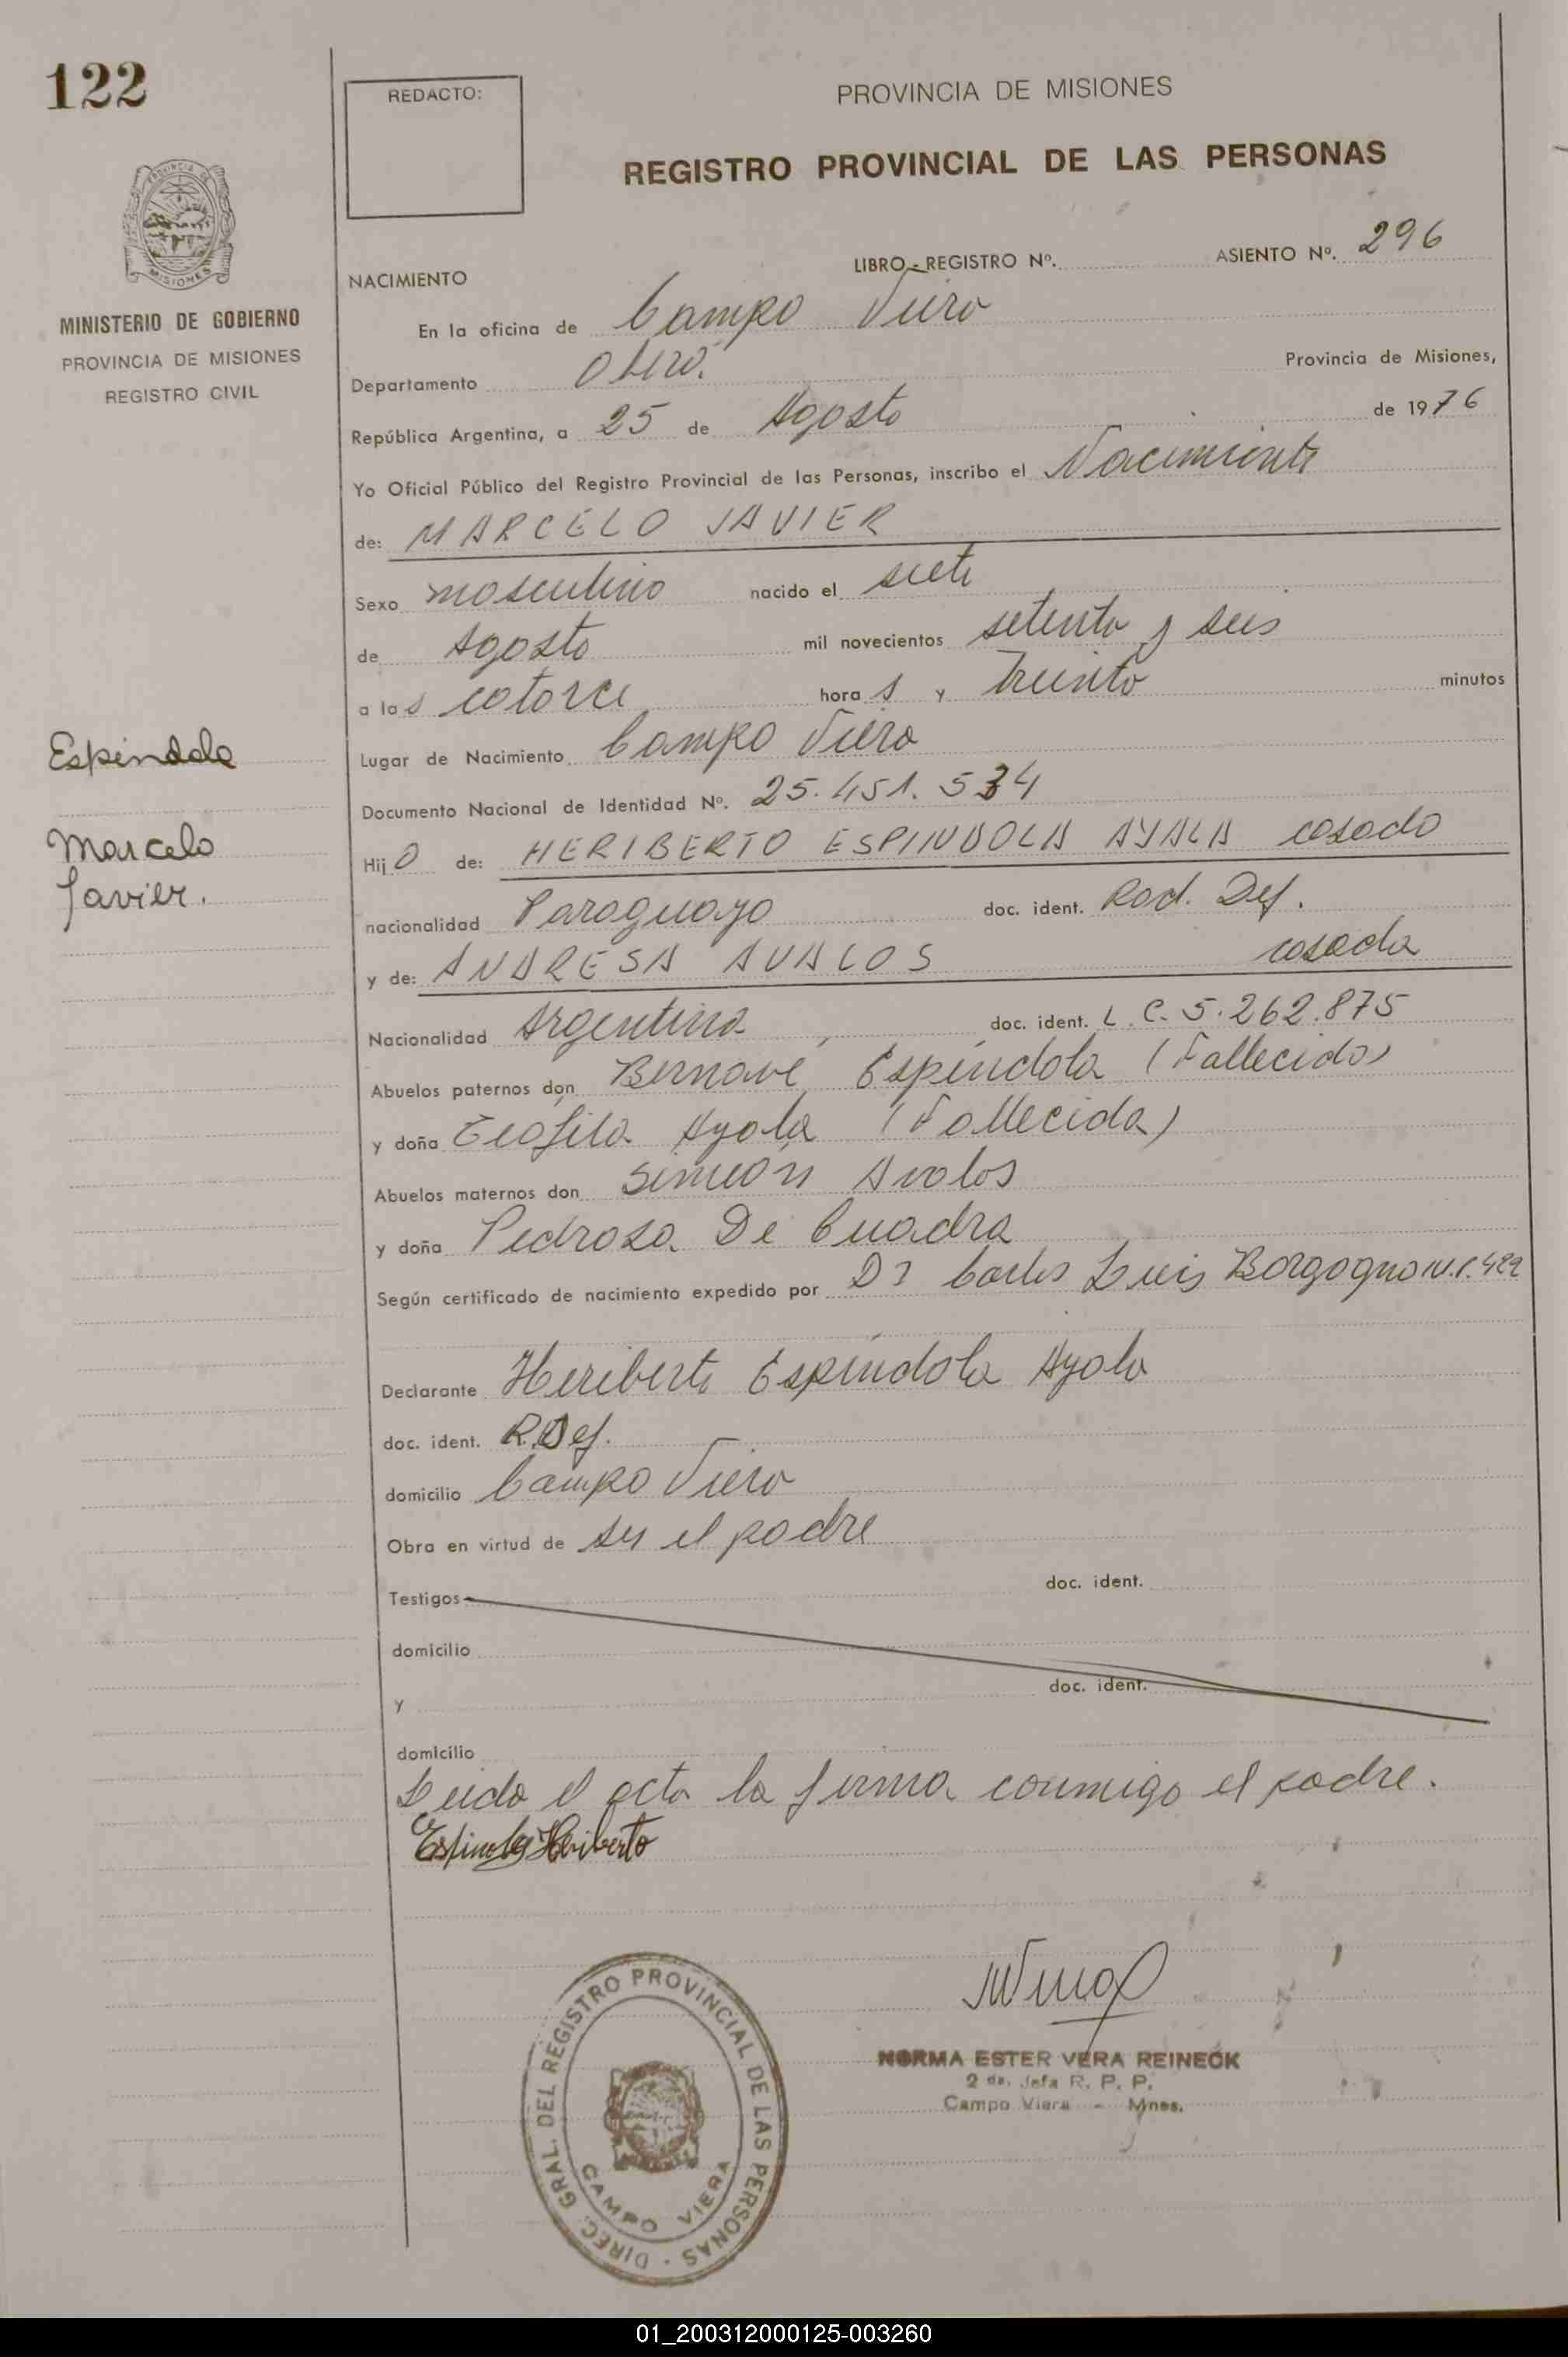 122
REDACTO:
PROVINCIA DE MISIONES
REGISTRO PROVINCIAL DE LAS PERSONAS
MISIONES
MINISTERIO DE GOBIERNO
PROVINCIA DE MISIONES
REGISTRO CIVIL
LIBRO - REGISTRO Nº. ASIENTO Nº. 296
NACIMIENTO
En la oficina de Campo Viera
Departamento Oberá. Provincia de Misiones,
República Argentina, a 25 de Agosto de 1976
Yo Oficial Público del Registro Provincial de las Personas, inscribo el Nacimiento
de: MARCELO JAVIER
Sexo masculino nacido el siete
de Agosto mil novecientos setenta y seis
a las catorce horas y Treinta minutos
Lugar de Nacimiento Campo Viera
Documento Nacional de Identidad Nº. 25.451.534
Hijo de: HERIBERTO ESPINDOLA AYALA casado
nacionalidad Paraguayo doc. ident. Rad. Def.
y de: ANDRESA AVALOS casada
Nacionalidad Argentina doc. ident. L.C. 5.262.875
Abuelos paternos don Bernavé Espíndola (Fallecido)
y doña Teófila Ayala (Fallecida)
Abuelos maternos don Simeón Avalos
y doña Pedrosa De Cuadra
Según certificado de nacimiento expedido por Dr Carlos Luis Borgogno
Declarante Heriberto Espíndola Ayala
doc. ident. R. Def.
domicilio Campo Viera
Obra en virtud de ser el padre
Testigos doc. ident.
domicilio
y doc. ident.
domicilio
Leida el acta la firma conmigo el padre.
Heriberto
Espíndola
Marcelo
Javier.
DIREC. GRAL. DEL REGISTRO PROVINCIAL DE LAS PERSONAS
CAMPO VIERA
NORMA ESTER VERA REINECK
2 da. Jefa R. P. P.
Campo Viera - Mnes.
01_200312000125-003260